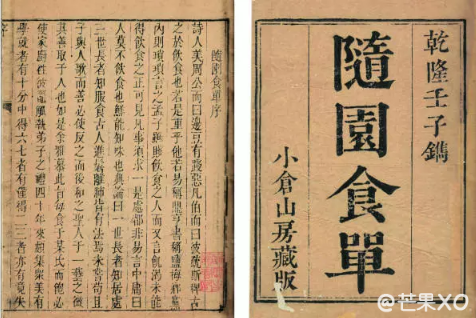 乾隆壬子鐫
隨園食單
小倉山房藏版
隨園食單序
詩人美周公而曰籩豆有踐惡凡伯而曰彼疏斯稗古
之於飲食也若是重乎他若易稱鼎烹書稱鹽梅鄉黨
內則瑣瑣言之孟子雖賤飲食之人而又言飢渴未能
得飲食之正可見凡事須求一是處都非易言中庸曰
人莫不飲食也鮮能知味也典論曰一世長者知居處
三世長者知服食古人進鬐離肺皆有法焉未嘗苟且
子與人歌而善必使反之而後和之聖人于一藝之微
其善取于人也如是余雅慕此旨每食于某氏而飽必
使家廚往彼灶觚執弟子之禮四十年來頗集眾美有
學就者有十分中得六七者有僅得二三者亦有竟失
@芒果XO